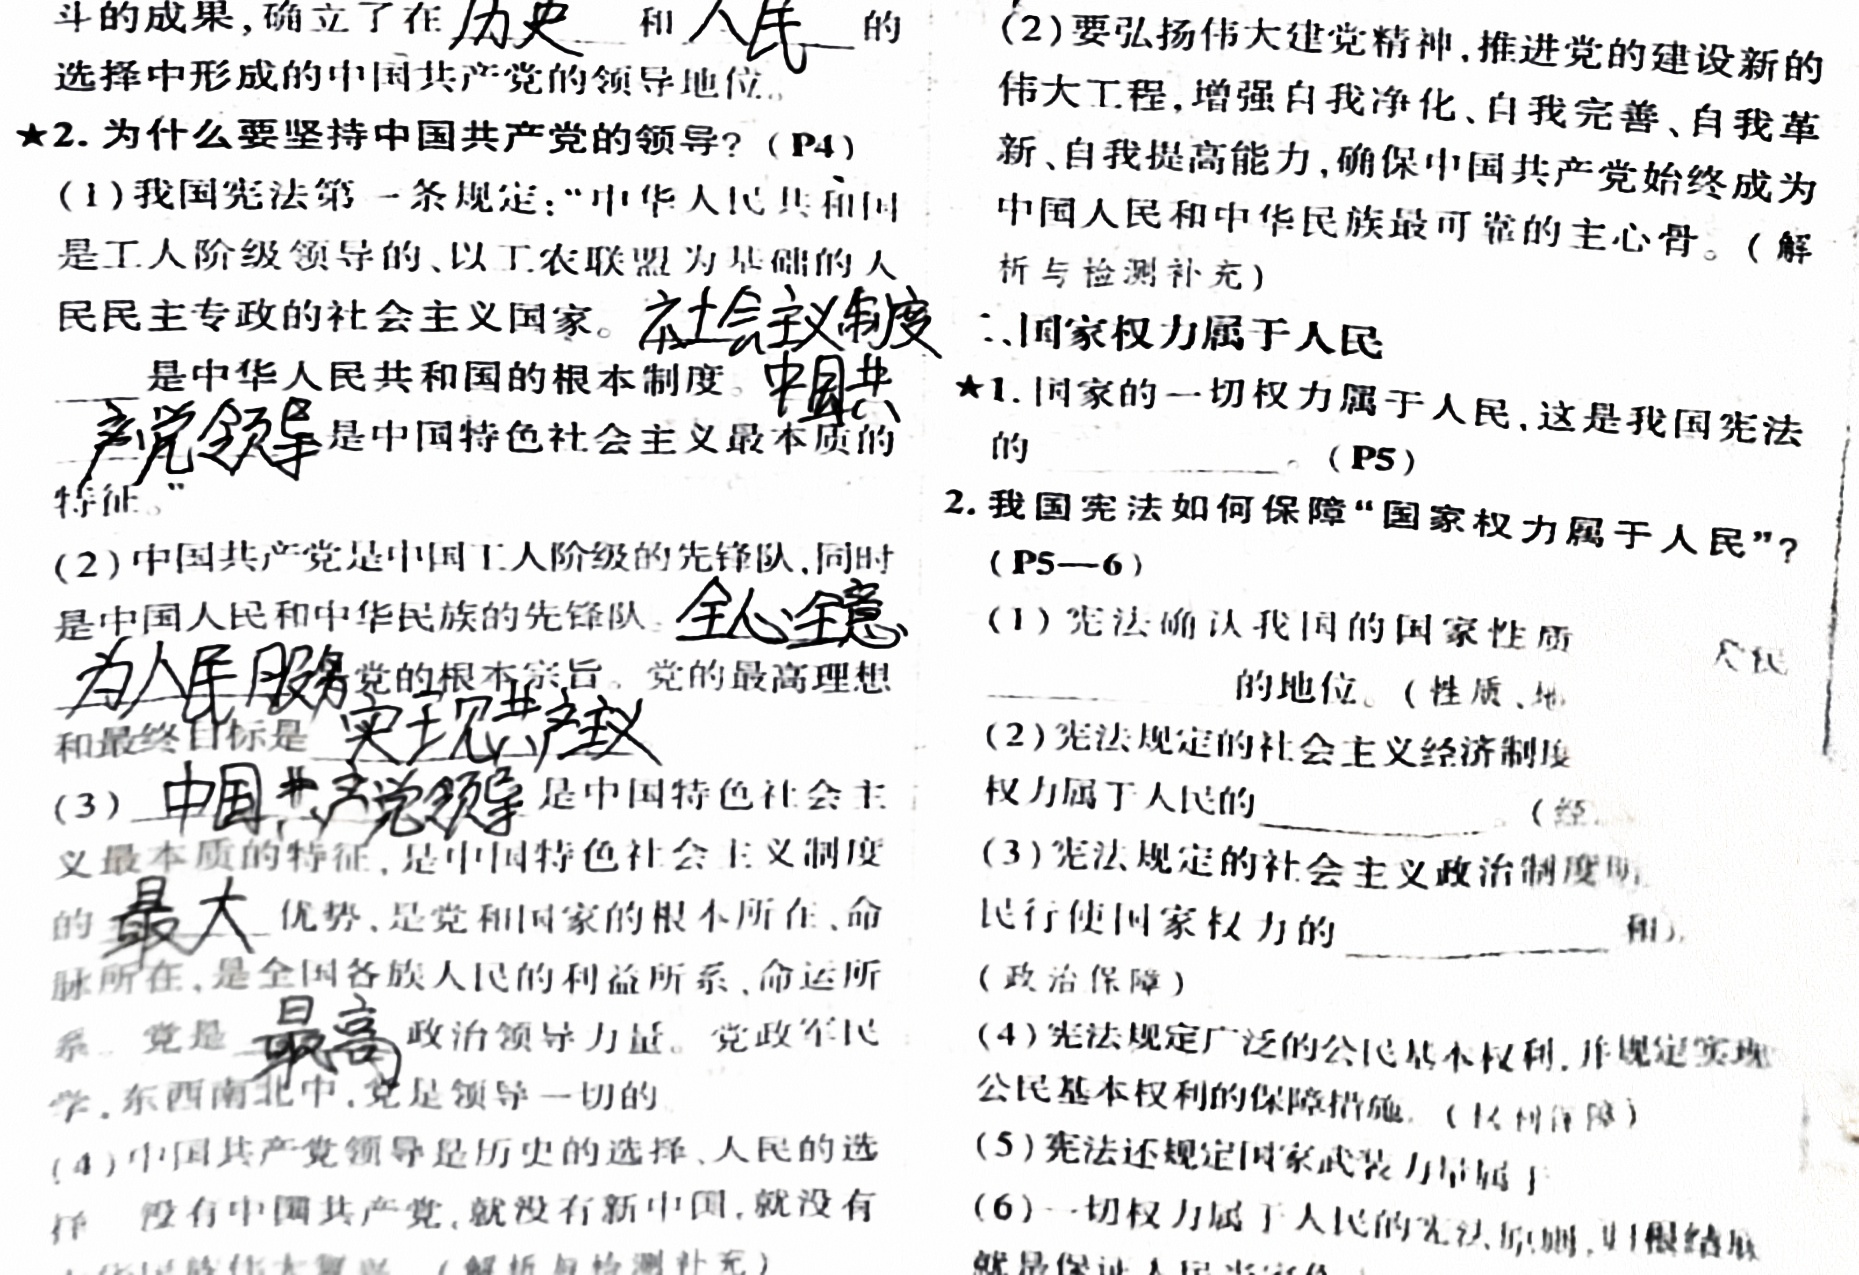 斗的成果,确立了在 历史 和 人民 的
选择中形成的中国共产党的领导地位。
★2.为什么要坚持中国共产党的领导?(P4)
(1)我国宪法第一条规定:“中华人民共和国
是工人阶级领导的、以工农联盟为基础的人
民民主专政的社会主义国家。社会主义制度
是中华人民共和国的根本制度。中国共
产党领导是中国特色社会主义最本质的
特征。”
(2)中国共产党是中国工人阶级的先锋队,同时
是中国人民和中华民族的先锋队。全心全意
为人民服务党的根本宗旨。党的最高理想
和最终目标是 实现共产主义
(3) 中国共产党领导 是中国特色社会主
义最本质的特征,是中国特色社会主义制度
的 最大 优势,是党和国家的根本所在、命
脉所在,是全国各族人民的利益所系、命运所
系。党是 最高 政治领导力量。党政军民
学,东西南北中,党是领导一切的
(4)中国共产党领导是历史的选择、人民的选
择 没有中国共产党,就没有新中国,就没有
(解析与检测补充)
(2)要弘扬伟大建党精神,推进党的建设新的
伟大工程,增强自我净化、自我完善、自我革
新、自我提高能力,确保中国共产党始终成为
中国人民和中华民族最可靠的主心骨。(解
析与检测补充)
二、国家权力属于人民
★1.国家的一切权力属于人民,这是我国宪法
的 。(P5)
2.我国宪法如何保障“国家权力属于人民”?
(P5—6)
(1)宪法确认我国的国家性质 人民
的地位。(性质、地
(2)宪法规定的社会主义经济制度
权力属于人民的 。(经
(3)宪法规定的社会主义政治制度
民行使国家权力的 和
(政治保障)
(4)宪法规定广泛的公民基本权利,并规定实现
公民基本权利的保障措施。(权利保障)
(5)宪法还规定国家武装力量属于
(6)一切权力属于人民的宪法原则,归根结底
就是保证人民当家作